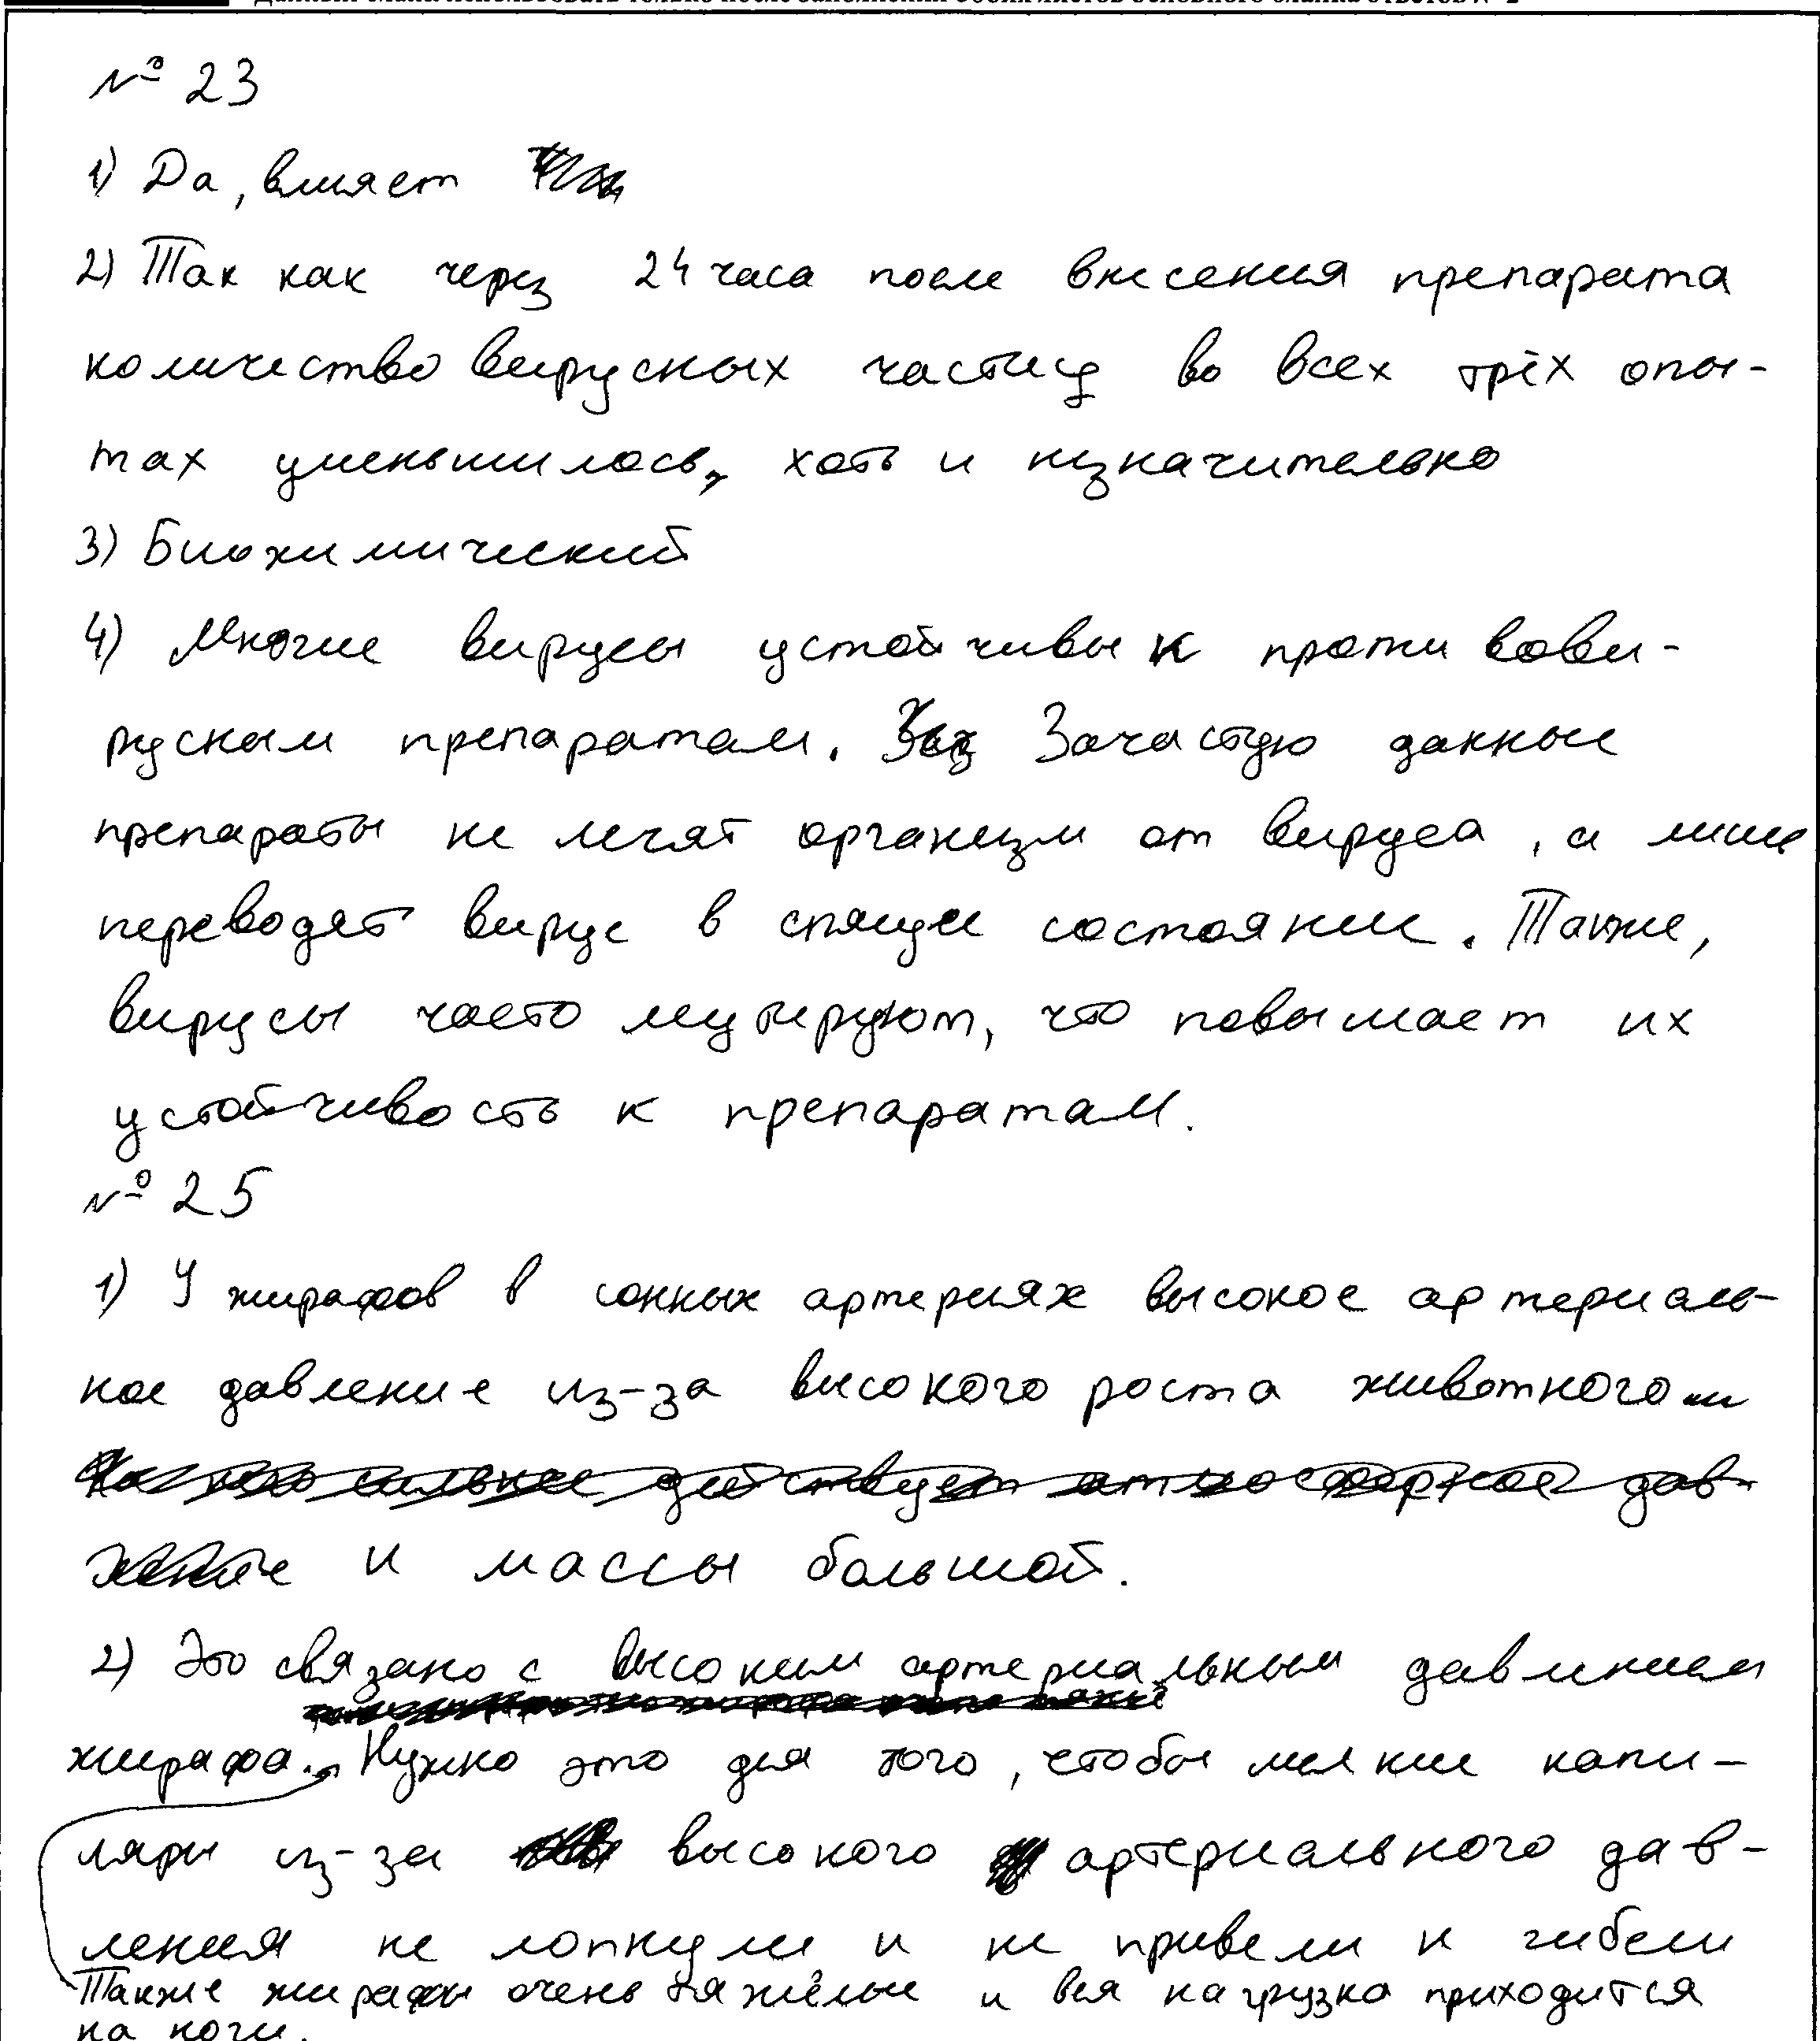 Данный бланк использовать только после заполнения обеих листов основного бланка ответов № 2
№ 23
1) Да, влияет
2) Так как через 24 часа после внесения препарата
количество вирусных частиц во всех трёх опы-
тах уменьшилось, хоть и незначительно
3) Биохимический
4) Многие вирусы устойчивы к противови-
русным препаратам. Зачастую данные
препараты не лечат организм от вируса, а лишь
переводят вирус в спящее состояние. Также,
вирусы часто мутируют, что повышает их
устойчивость к препаратам.
№ 25
1) У жирафов в сонных артериях высокое артериаль-
ное давление из-за высокого роста животного
и массы большой.
2) Это связано с высоким артериальным давлением
жирафа. Нужно это для того, чтобы мелкие капи-
ляры из-за высокого артериального дав-
ления не лопнули и не привели к гибели
Также жирафы очень тяжёлые и вся нагрузка приходится
на ноги.